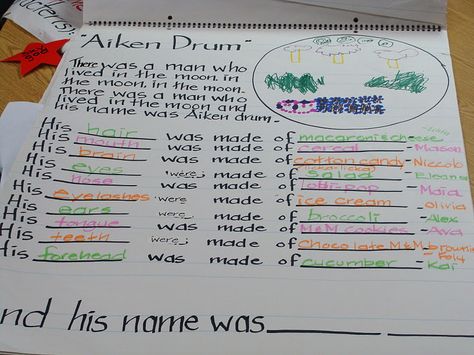 "Aiken Drum"
There was a man who
lived in the moon, in
the moon, in the moon.
There was a man who
lived in the moon and
his name was Aiken drum.
His hair was made of macaroni & cheese
His mouth was made of cereal - Mason
His brain was made of cotton candy - Niccob
His eyes were made of salad - Eleana
His nose was made of lolli-pop - Maia
His eyelashes were made of ice cream - Olivia
His ears were made of broccoli - Alex
His tongue was made of M&M cookies - Ava
His teeth were made of chocolate M&M brownie
His forehead was made of cucumber - Kai
nd his name was